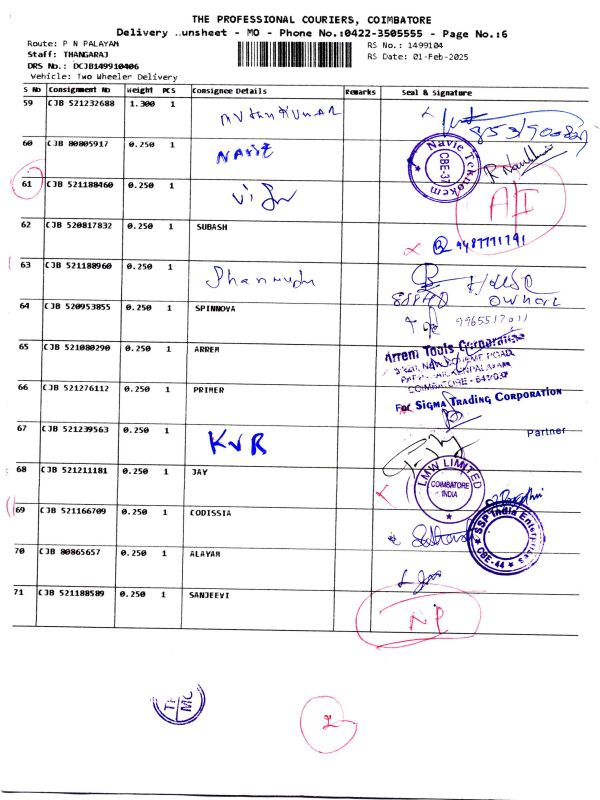 THE PROFESSIONAL COURIERS, COIMBATORE
Delivery ..unsheet - MO - Phone No.:0422-3505555 - Page No.:6
Route: P N PALAYAM
RS No.: 1499104
Staff: THANGARAJ
RS Date: 01-Feb-2025
DRS No.: DCJB149910406
Vehicle: Two Wheeler Delivery
S No Consignment No Weight PCS Consignee Details Remarks Seal & Signature
59 CJB 521232688 1.300 1
60 CJB 80805917 0.250 1 NAVIE
Navie Teknokem
CBE-37
61 CJB 521188460 0.250 1
62 CJB 520817832 0.250 1 SUBASH 9487771791
63 CJB 521188960 0.250 1
64 CJB 520953855 0.250 1 SPINNOVA 9965517011
65 CJB 521080290 0.250 1 ARREM
Arrem Tools Corporation
COIMBATORE
66 CJB 521276112 0.250 1 PRIMER
For SIGMA TRADING CORPORATION
Partner
67 CJB 521239563 0.250 1 KVR
68 CJB 521211181 0.250 1 JAY
LMW LIMITED
COIMBATORE
INDIA
69 CJB 521166709 0.250 1 CODISSIA
SSP India Enterprises
CBE-44
70 CJB 80865657 0.250 1 ALAYAM
71 CJB 521188589 0.250 1 SANJEEVI
NP